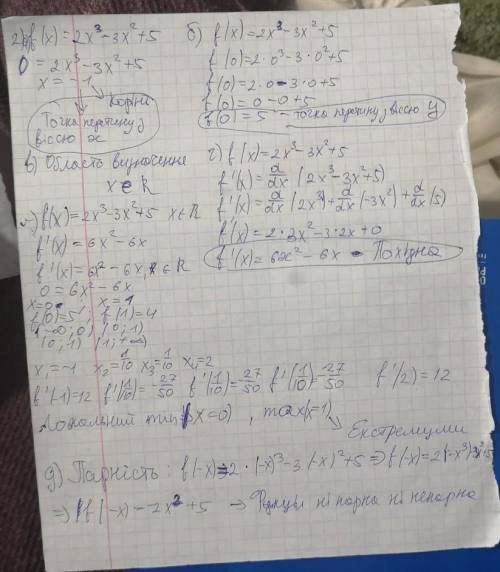 2) a) f(x) = 2x³ - 3x² + 5
0 = 2x³ - 3x² + 5
x = -1
Корінь
Точка перетину з віссю x
б) f(x) = 2x³ - 3x² + 5
f(0) = 2·0³ - 3·0² + 5
f(0) = 2·0 - 3·0 + 5
f(0) = 0 - 0 + 5
f(0) = 5 - точка перетину з віссю y
в) Область визначення
x ∈ R
г) f(x) = 2x³ - 3x² + 5
f'(x) = d/dx (2x³ - 3x² + 5)
f'(x) = d/dx (2x³) + d/dx (-3x²) + d/dx (5)
f'(x) = 2·3x² - 3·2x + 0
f'(x) = 6x² - 6x - Похідна
f(x) = 2x³ - 3x² + 5 x ∈ R
f'(x) = 6x² - 6x
f'(x) = 6x² - 6x, x ∈ R
0 = 6x² - 6x
x = 0; x = 1
f(0) = 5; f(1) = 4
(-∞; 0) (0; 1)
(0; 1) (1; +∞)
x₁ = -1 x₂ = 1/10 x₃ = 1/10 x₄ = 2
f'(-1) = 12 f'(1/10) = -27/50 f'(1/10) = -27/50 f'(1/10) = -27/50 f'(2) = 12
Локальний min (x = 0), max (x = 1)
Екстремуми
д) Парність: f(-x) = 2·(-x)³ - 3·(-x)² + 5 ⇒ f(-x) = 2(-x³) - 3x² + 5
⇒ f(-x) - 2x³ + 5 → Функція ні парна ні непарна